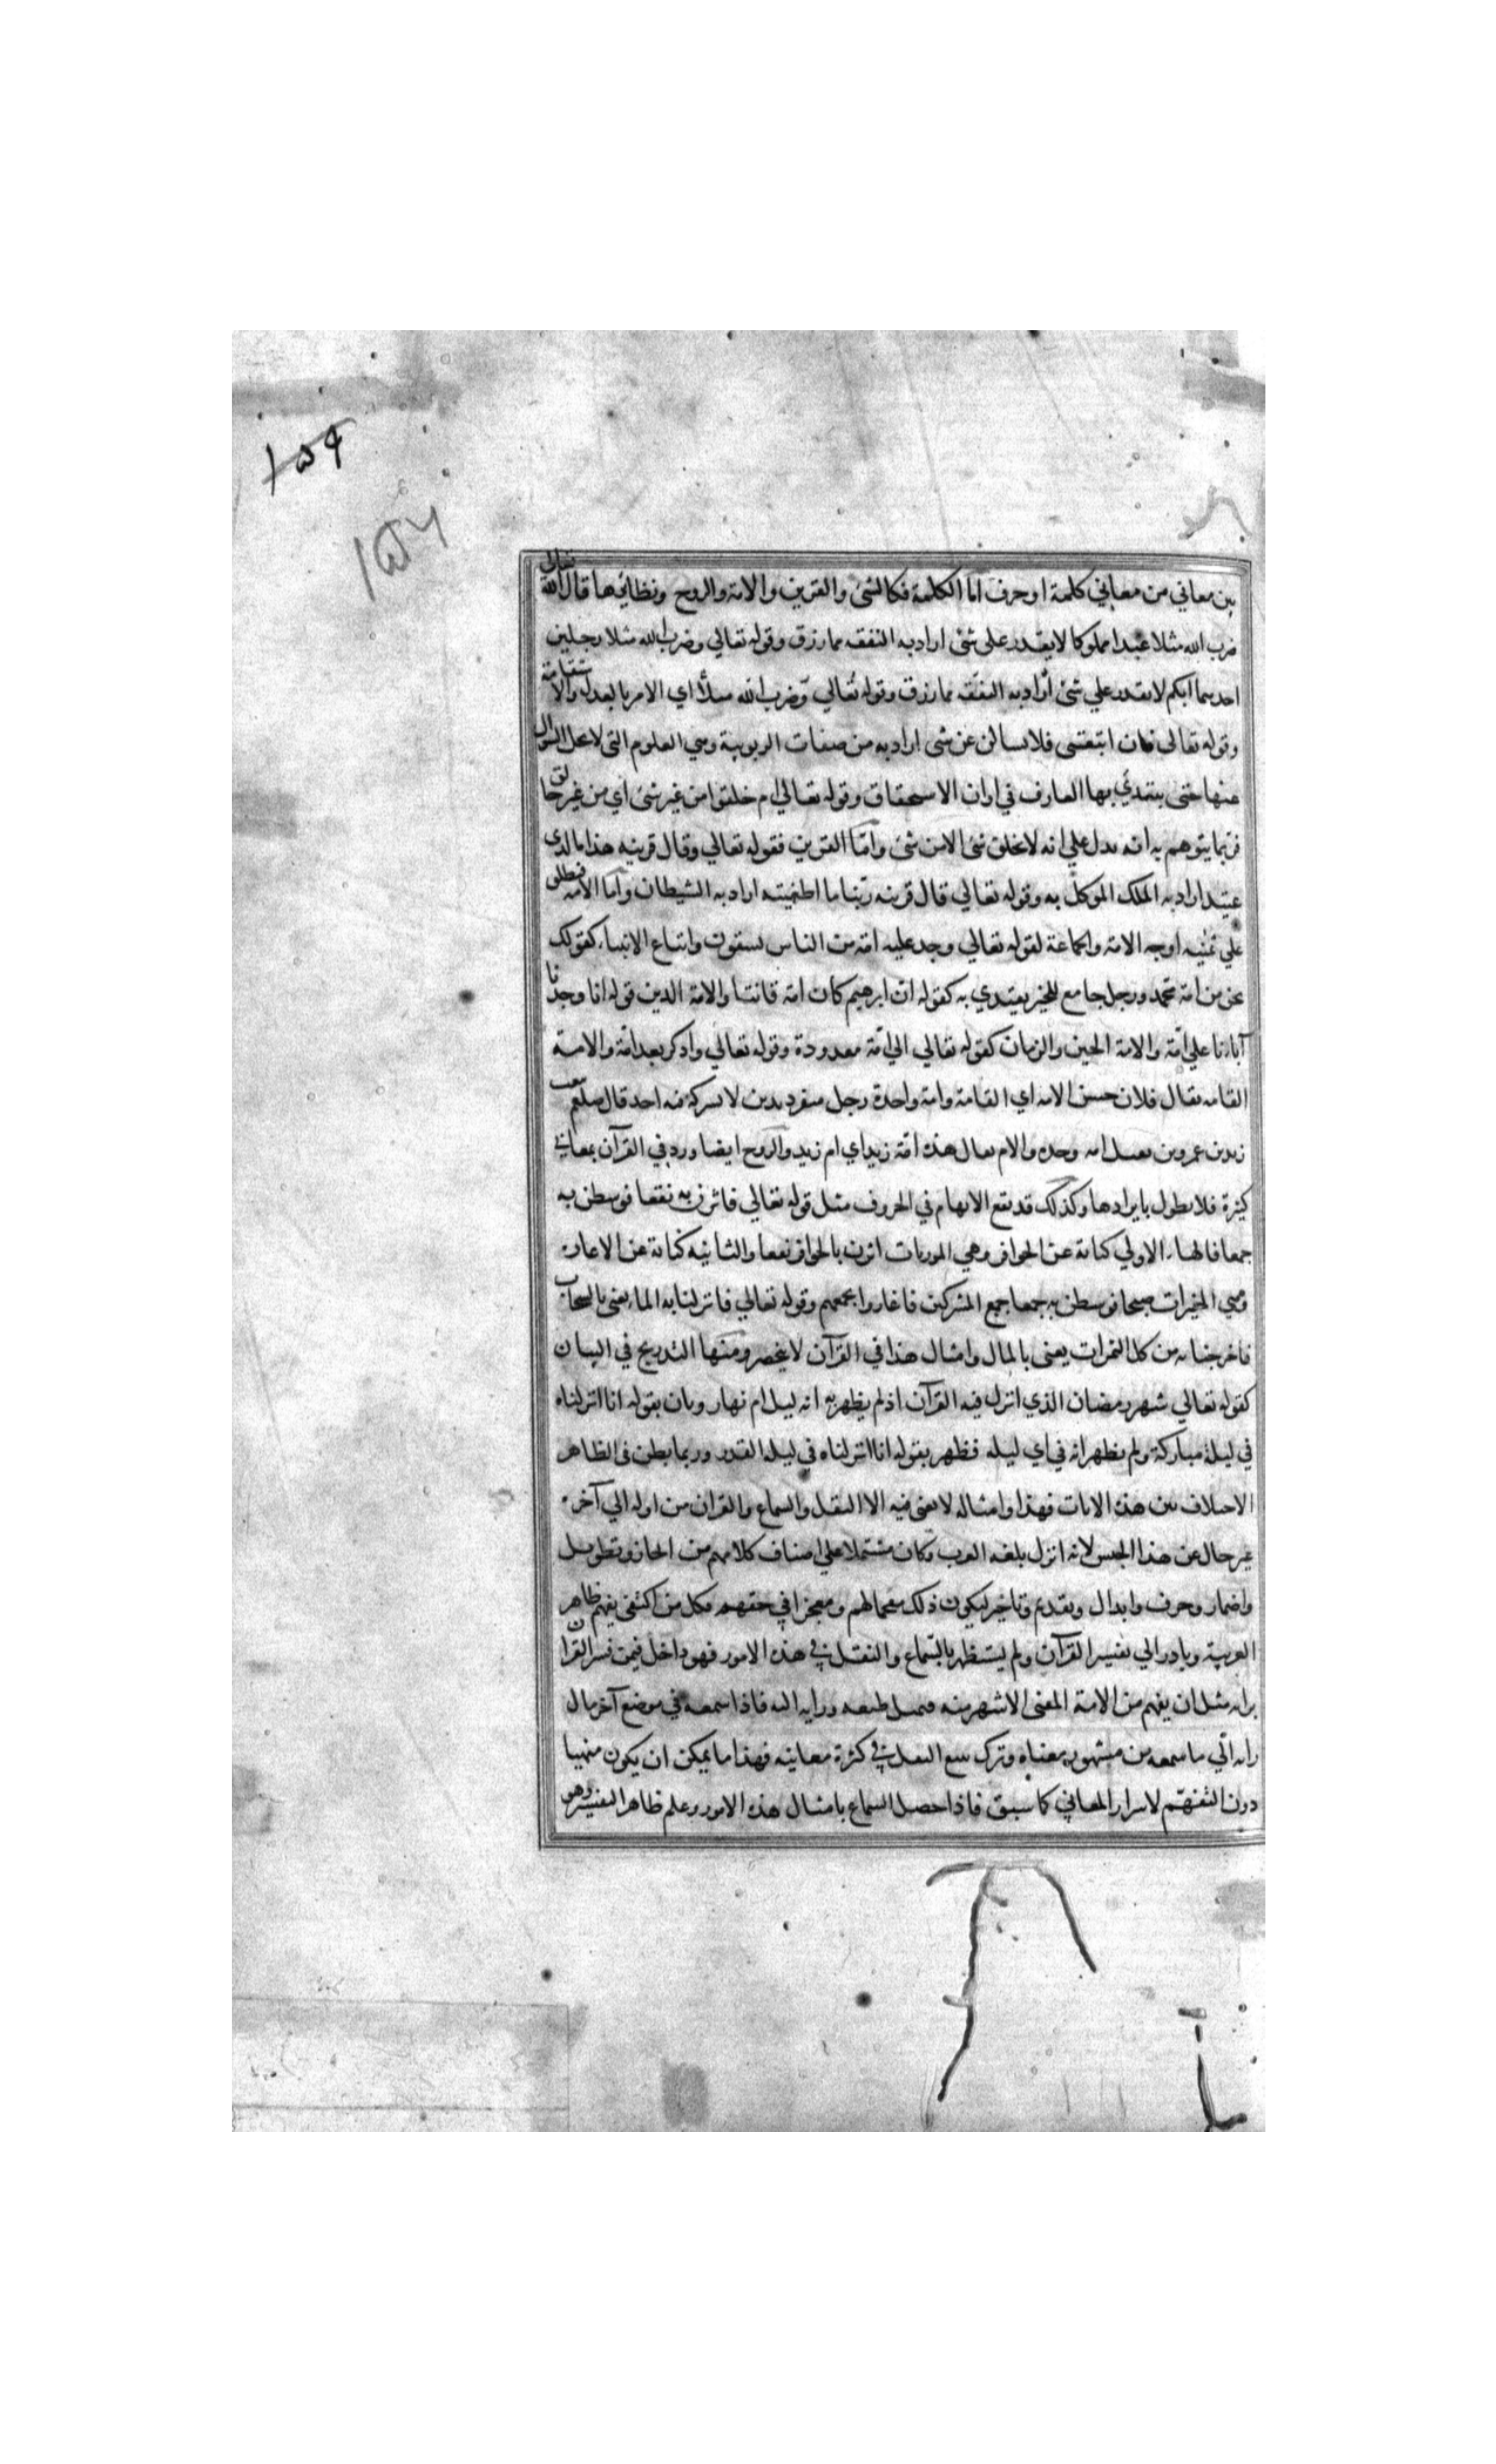 ١٥٩
١٥٦
بين معاني من معاني كلمة او حرف اما الكلمة فكالشئ والقرين والامة والروح ونظائرها قال الله تعالى
ضرب الله مثلا عبدا مملوكا لا يقدر على شئ اراد به النفقه مما رزق وقوله تعالي وضرب الله مثلا رجلين
احدهما ابكم لا يقدر علي شئ أراد به النفقه مما رزق وقوله تعالي وضرب الله مثلاً اي الامر بالعدل والاستقامة
وقوله تعالى فان اتبعتني فلا تسالن عن شى اراد به من صفات الربوبية وهي العلوم التى لا يحل السوال
عنها حتى يبتدئ بها العارف في اوان الاستحقاق وقوله تعالي ام خلقوا من غير شئ اي من غير خالق
فربما يتوهم به انه يدل علي انه لا يخلق شى الا من شئ واما القرين فقوله تعالي وقال قرينه هذا ما لدى
عتيد اراد به الملك الموكل به وقوله تعالي قال قرينه ربنا ما اطغيته اراد به الشيطان واما الامه فيطلق
علي ثمنيه اوجه الامة والجماعة لقوله تعالي وجد عليه امة من الناس يسقون واتباع الانبياء كقولك
نحن من امة محمد ورجل جامع للخير يقتدي به كقوله ان ابرهيم كان امة قانتا والامة الدين قوله انا وجدنا
آباءنا علي امة والامة الحين والزمان كقوله تعالي الي امة معدودة وقوله تعالي وادكر بعد امة والامة
القامه يقال فلان حسن الامه اي القامة وامة واحدة رجل منفرد بدين لا يشركه فيه احد قال صلعم يبعث
زيد بن عمرو بن نفيل امه وحده والام يقال هذه امة زيد اي ام زيد والروح ايضا ورد في القرآن بمعاني
كثيرة فلا نطول بايرادها وكذلك قد يقع الابهام في الحروف مثل قوله تعالي فاثرن به نقعا فوسطن به
جمعا فالهاء الاولي كناية عن الحوافر وهي الموريات اثرن بالحوافر نقعا والثانيه كناية عن الاغارة
وهي المغيرات صبحا فوسطن به جمعا جمع المشركين فاغاروا بجمعهم وقوله تعالي فانزلنا به الماء يعنى بالسحاب
فاخرجنا به من كل الثمرات يعنى بالمال وامثال هذا في القرآن لا ينحصر ومنها التدريج في البيان
كقوله تعالي شهر رمضان الذي انزل فيه القرآن اذ لم يظهر به انه ليل ام نهار وبان بقوله انا انزلناه
في ليلة مباركة ولم يظهر انه في اي ليله فظهر بقوله انا انزلناه في ليلة القدر وربما يظن فى الظاهر
الاختلاف بين هذه الايات فهذا وامثاله لا يغنى فيه الا النقل والسماع والقران من اوله الي آخره
غير خال عن هذا الجنس لانه انزل بلغه العرب وكان مشتملا علي اصناف كلامهم من ايجاز وتطويل
واضمار وحذف وابدال وتقديم وتاخير ليكون ذلك مفحما لهم ومعجزا في حقهم فكل من اكتفى بفهم ظاهر
العربية وبادر الي تفسير القرآن ولم يستظهر بالسماع والنقل في هذه الامور فهو داخل فيمن فسر القران
برايه مثل ان يفهم من الامة المعنى الاشهر منه فيميل طبعه ورايه اليه فاذا سمعه في موضع آخر مال
رايه الي ما سمعه من مشهور معناه وترك تتبع النقل في كثرة معانيه فهذا ما يمكن ان يكون منهيا
دون التفهم لاسرار المعاني كما سبق فاذا حصل السماع بامثال هذه الامور وعلم ظاهر التفسير وهو